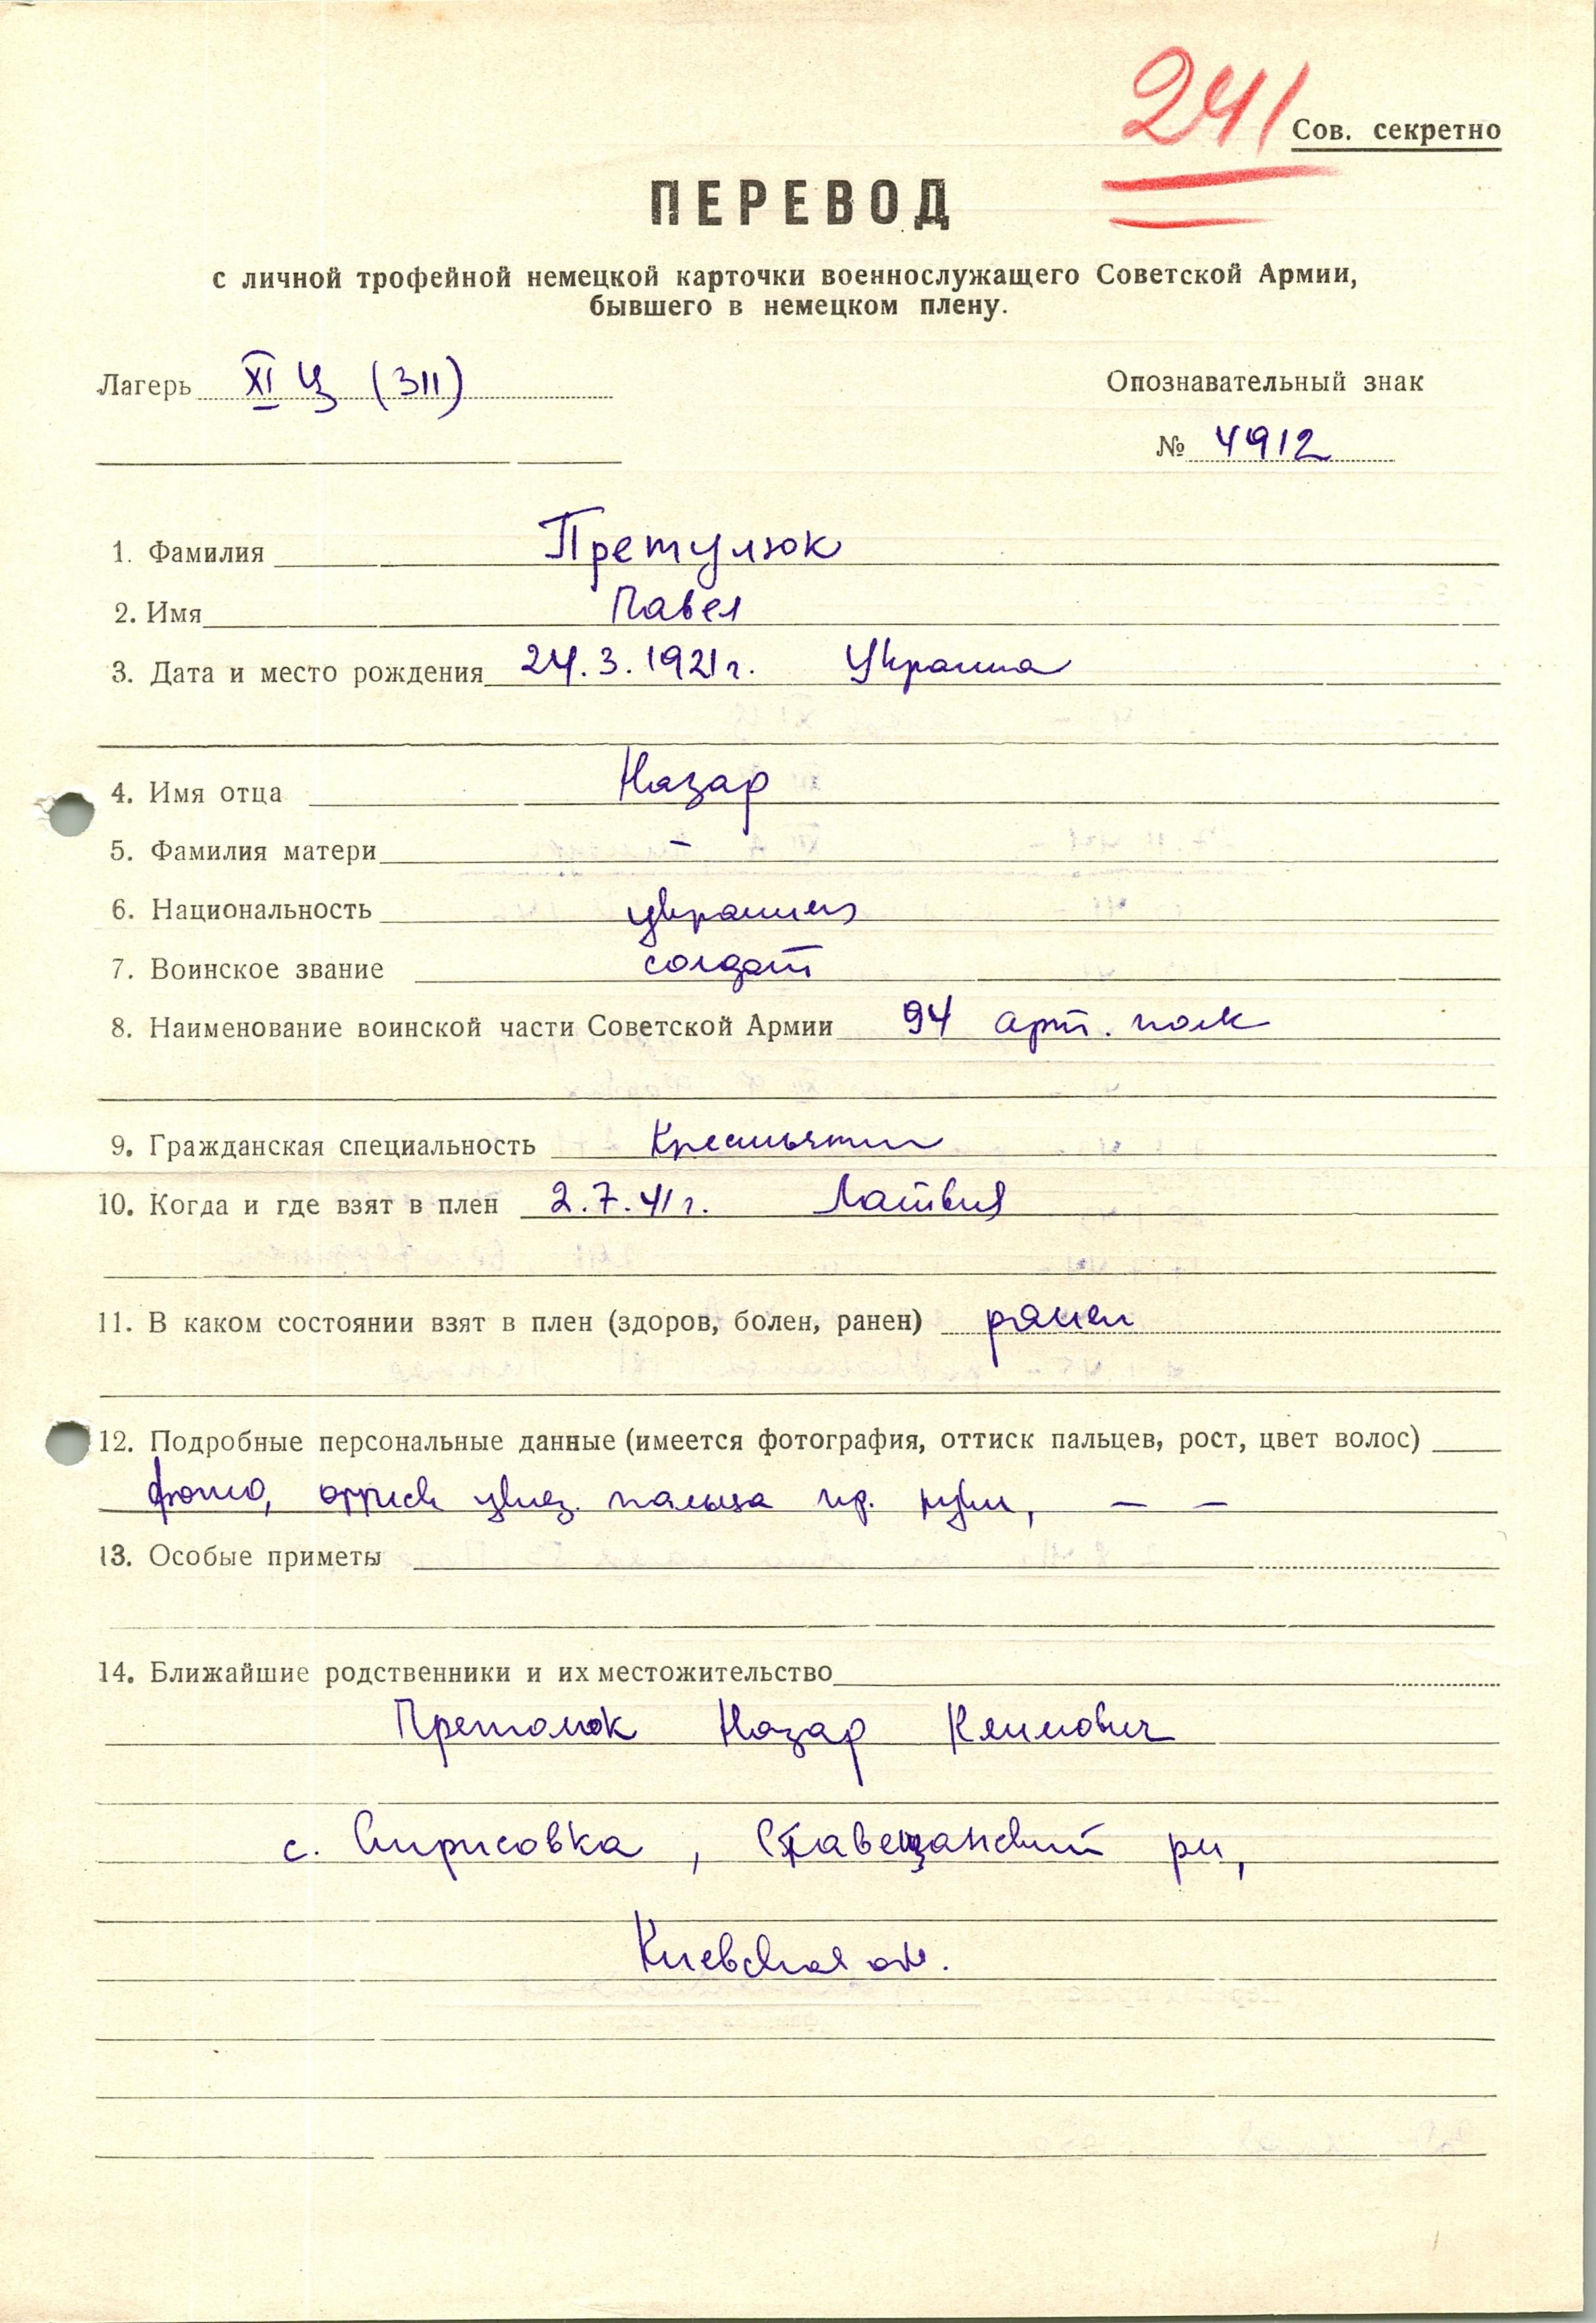 241
Сов. секретно
ПЕРЕВОД
с личной трофейной немецкой карточки военнослужащего Советской Армии,
бывшего в немецком плену.
Лагерь XI Ц (311)
Опознавательный знак
№ 4912
1. Фамилия Претулюк
2. Имя Павел
3. Дата и место рождения 24.3.1921г. Украина
4. Имя отца Назар
5. Фамилия матери –
6. Национальность украинец
7. Воинское звание солдат
8. Наименование воинской части Советской Армии 94 арт. полк
9. Гражданская специальность Крестьянин
10. Когда и где взят в плен 2.7.41г. Латвия
11. В каком состоянии взят в плен (здоров, болен, ранен) ранен
12. Подробные персональные данные (имеется фотография, оттиск пальцев, рост, цвет волос)
фото, оттиск указ. пальца пр. руки, – –
13. Особые приметы
14. Ближайшие родственники и их местожительство
Назар Климович
с. , Ставещанский рн,
Киевская обл.